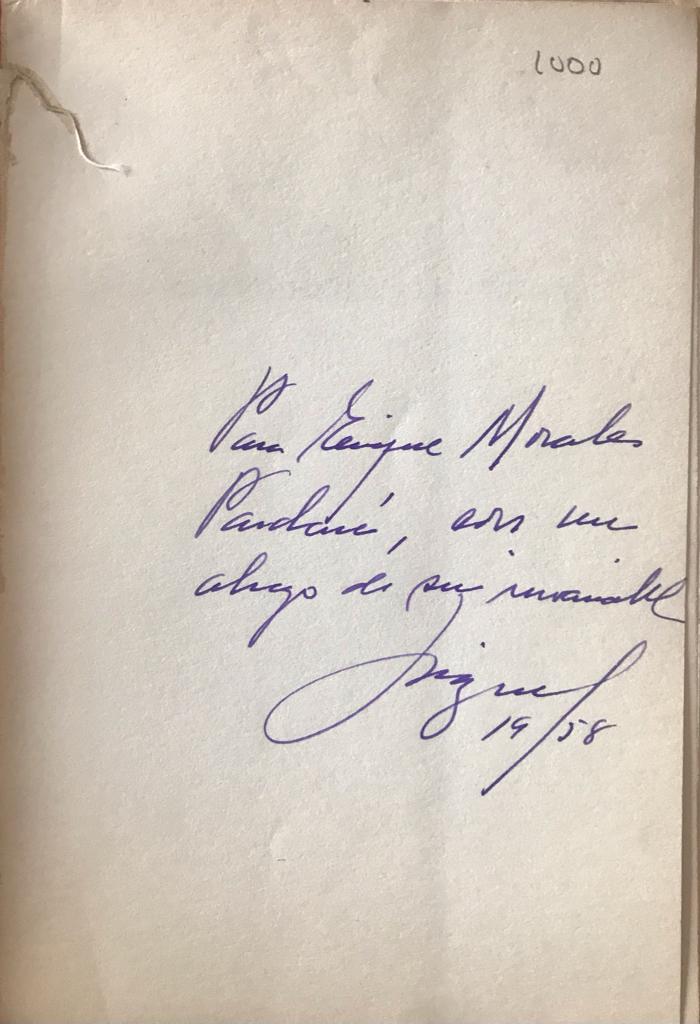 1000
Para Enrique Morales
Pardavé, con un
abrazo de su invariable
Miguel
19/58